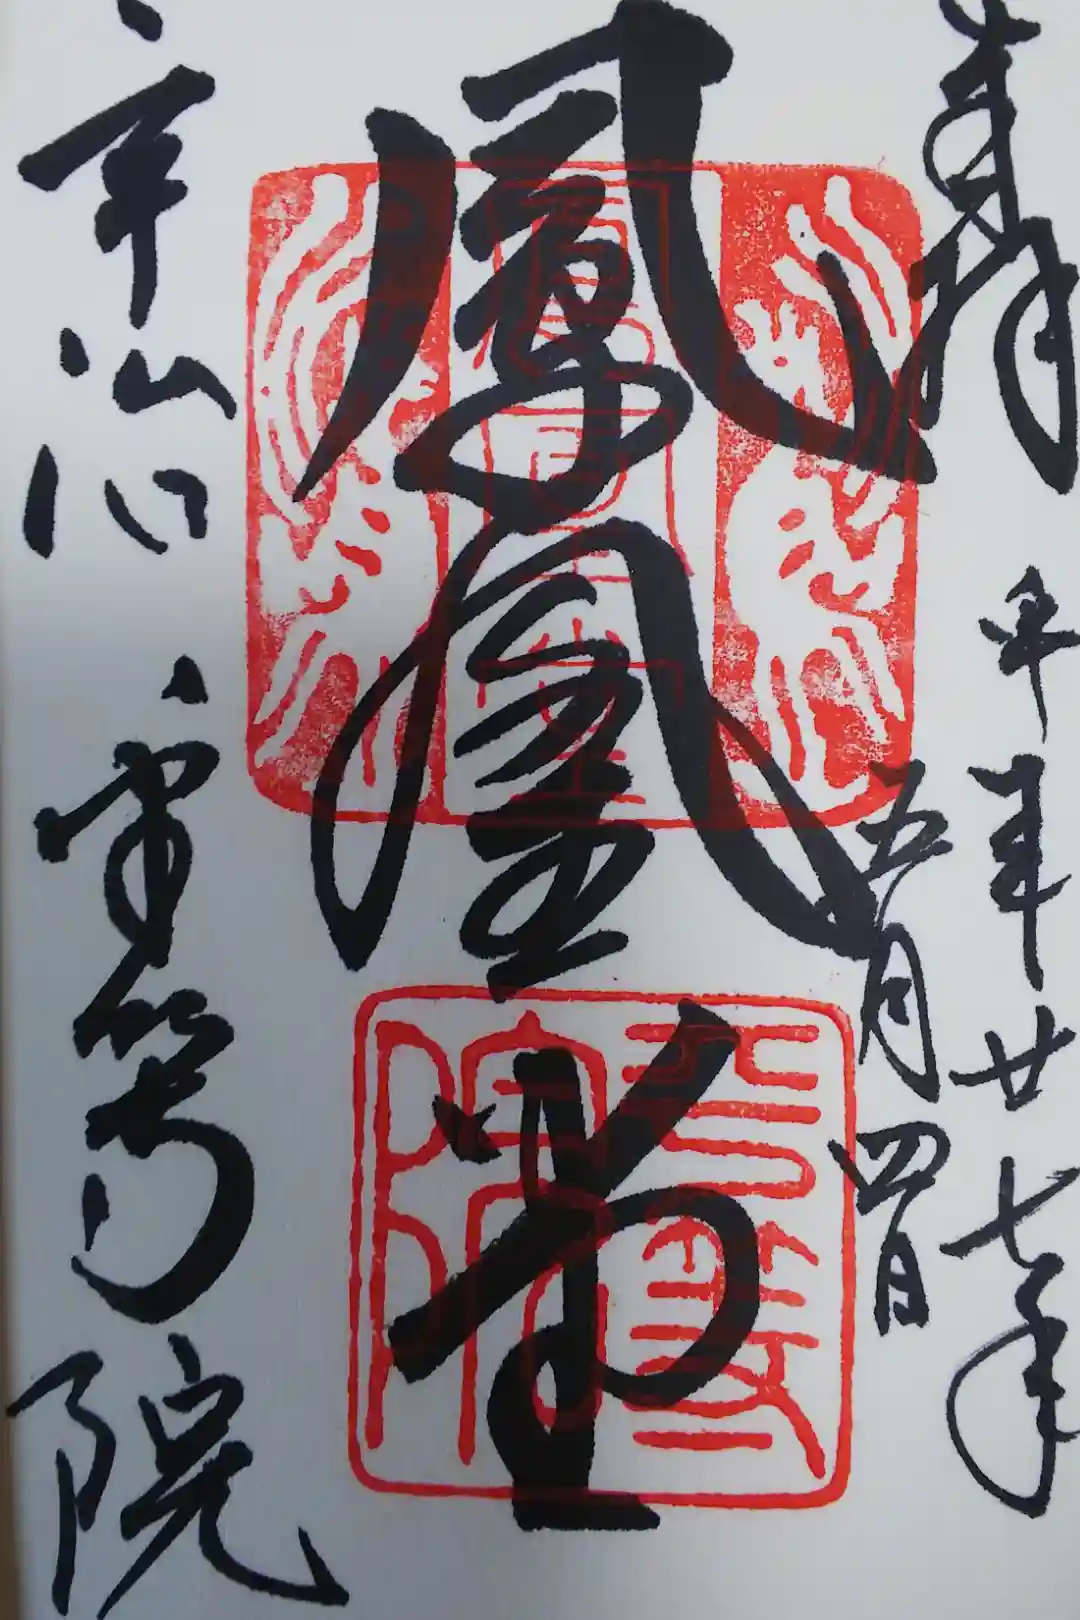 奉拝
平成廿七年
五月四日
鳳凰堂
宇治 平等院